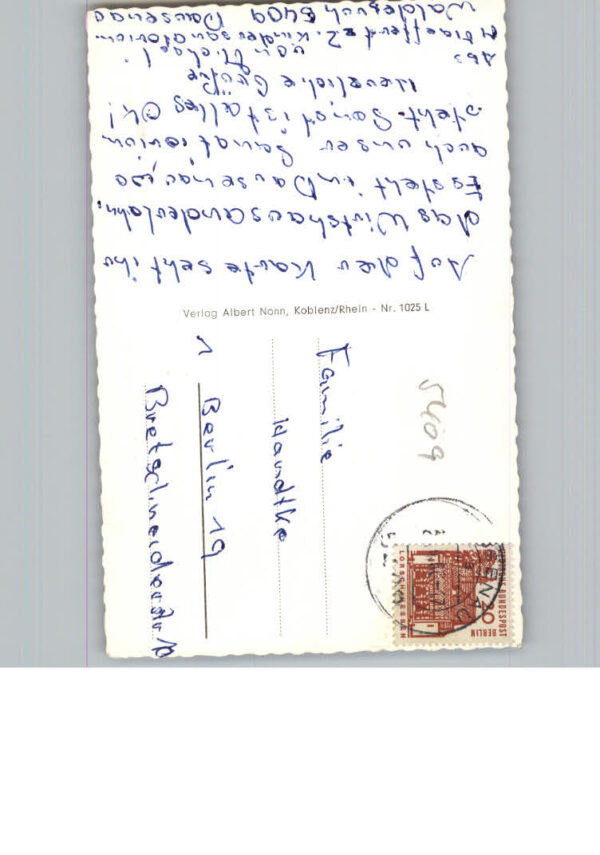 Auf der Karte seht ihr
das Wirtshausanderlahn.
Es steht in Dausenau, wo
auch unser Sanatorium
steht. Sonst ist alles OK!
Herzliche Grüße
von Michael!
Abs. z.Z. Kindersanatorium
Waldesruh 5409 Dausenau
Verlag Albert Nonn, Koblenz/Rhein - Nr. 1025 L
5409
Familie
Handtke
1 Berlin 19
Bretschneiderstr.
BUNDESPOST
BERLIN
20
LORSCH/HESSEN